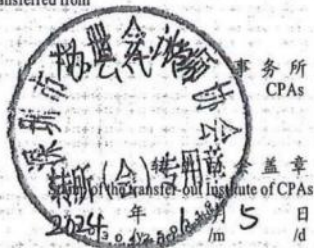 ansferred from
事务所
CPAs
深圳市注册会计师协会
转所(会)专用章
协会盖章
Stamp of the transfer-out Institute of CPAs
2024 年 月 5 日
/m /d